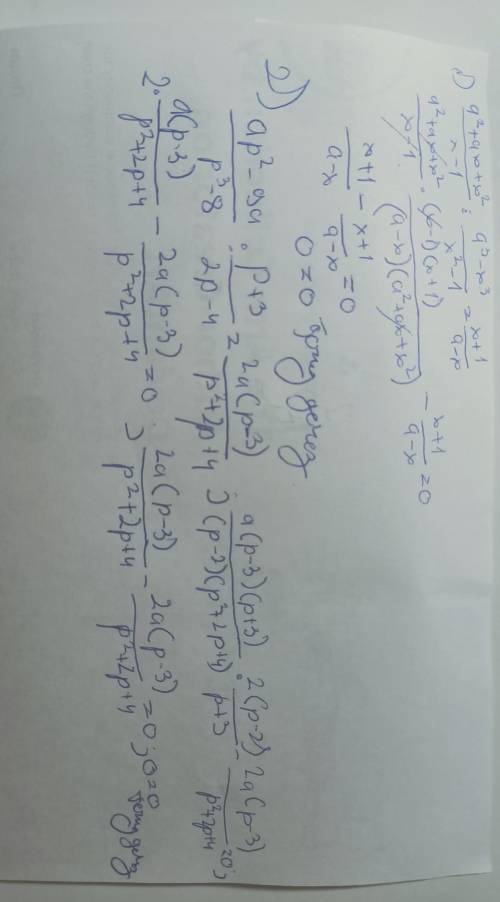 1) (a²+ax+x²)/(x-1) : (a³-x³)/(x²-1) = (x+1)/(a-x)
(a²+ax+x²)/(x-1) · ((x-1)(x+1))/((a-x)(a²+ax+x²)) - (x+1)/(a-x) = 0
(x+1)/(a-x) - (x+1)/(a-x) = 0
0=0
2) (ap²-9a)/(p³-8) : (p+3)/(2p-4) = (2a(p-3))/(p²+2p+4) ; (a(p-3)(p+3))/((p-2)(p²+2p+4)) · (2(p-2))/(p+3) - (2a(p-3))/(p²+2p+4) =0;
2·(a(p-3))/(p²+2p+4) - (2a(p-3))/(p²+2p+4) =0 ; (2a(p-3))/(p²+2p+4) - (2a(p-3))/(p²+2p+4) =0; 0=0